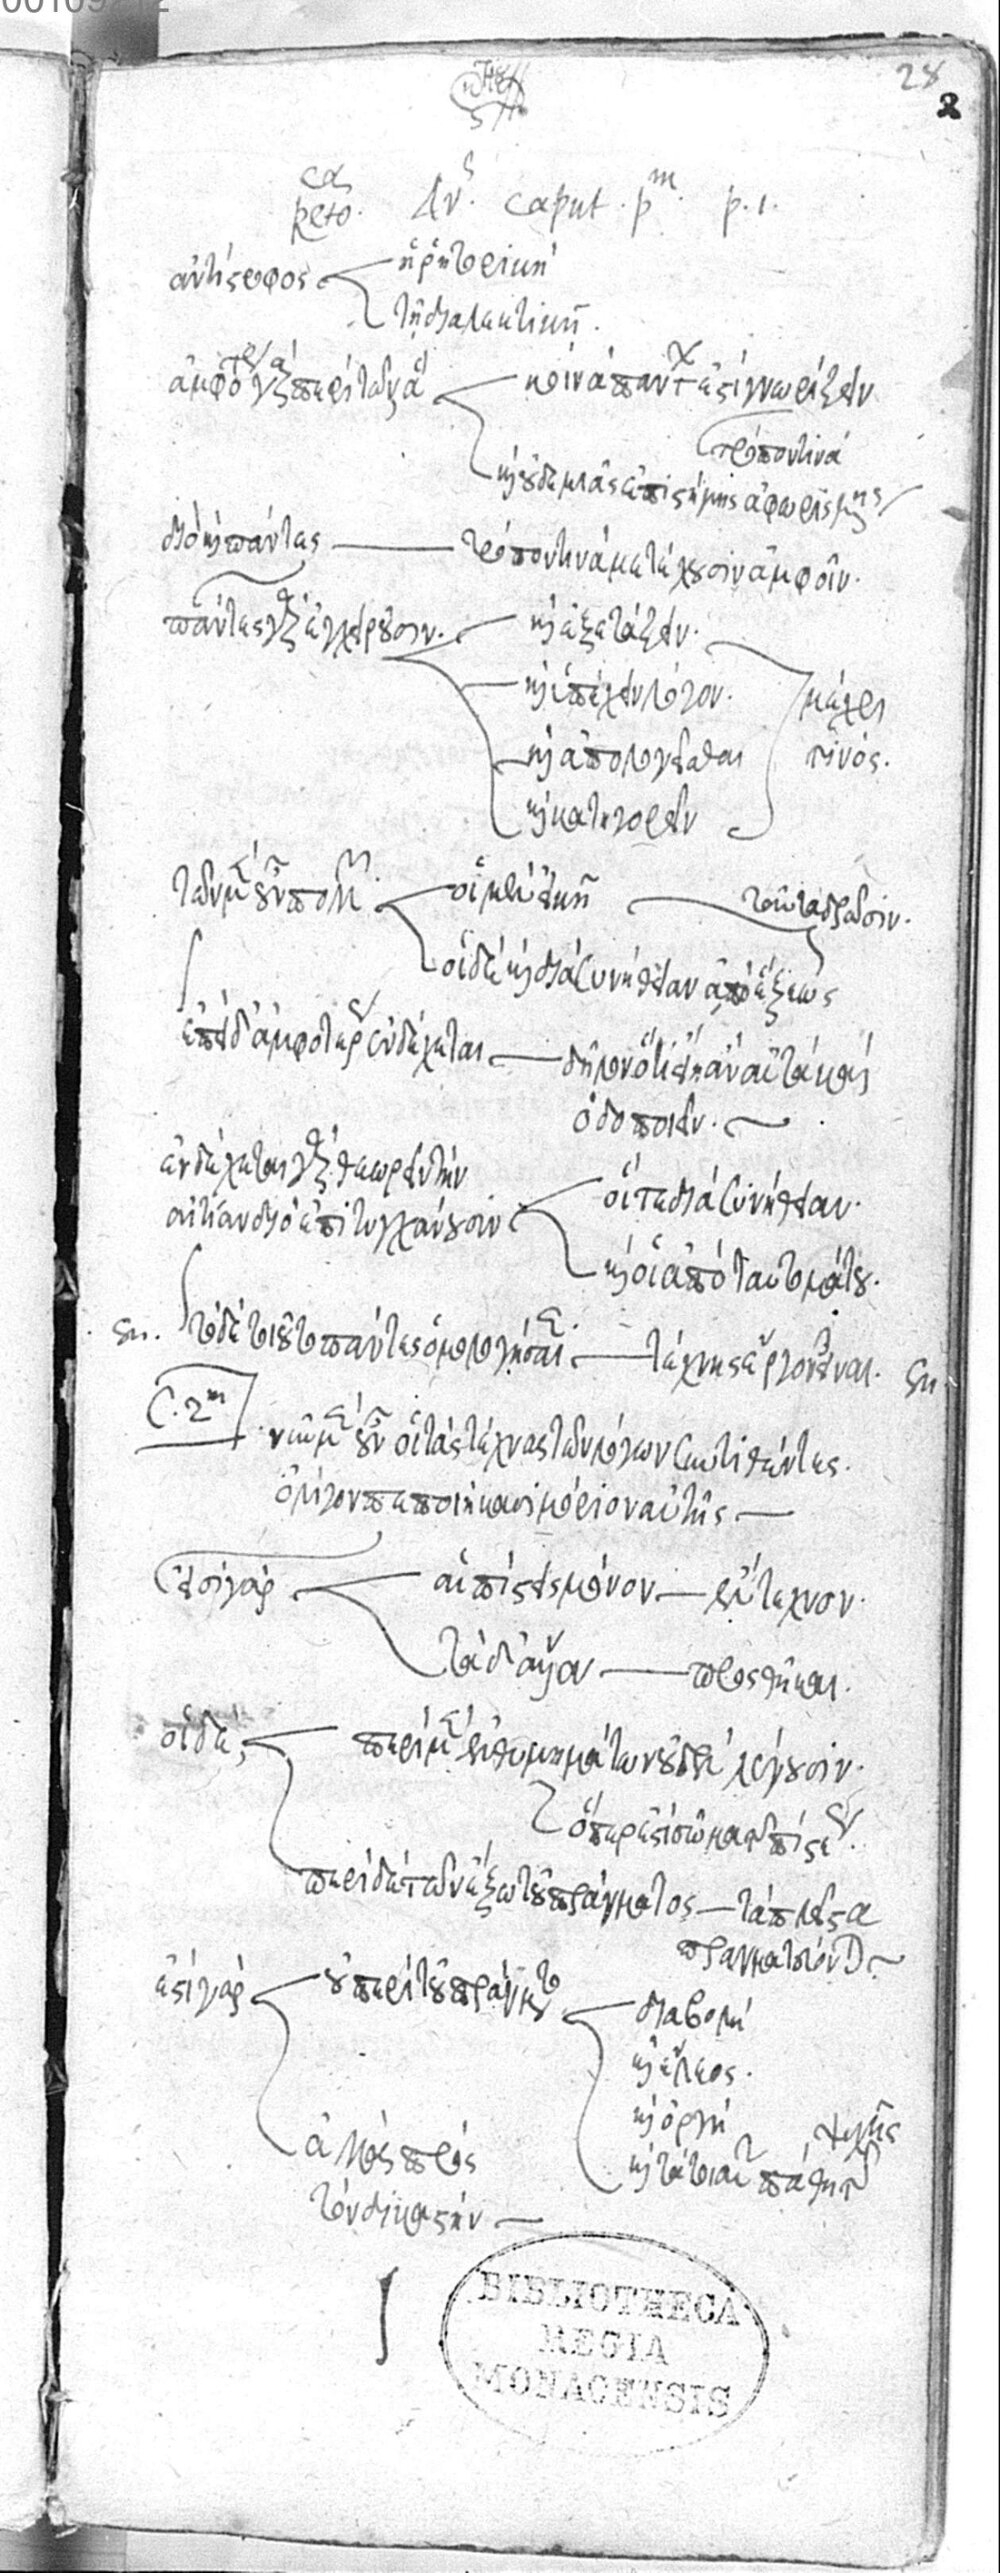 28
2
caput. pm. p. 1.
ἀντίστροφος
ἡ ῥητορική
τῇ διαλεκτικῇ.
κοινὰ
ἐστὶ γνωρίζειν
τρόπον τινὰ
καὶ οὐδεμιᾶς ἐπιστήμης ἀφωρισμένης
διὸ καὶ πάντες
τρόπον τινὰ μετέχουσιν ἀμφοῖν.
πάντες γὰρ ἐγχειροῦσιν.
καὶ ἐξετάζειν.
καὶ ὑπέχειν λόγον.
καὶ ἀπολογεῖσθαι
καὶ κατηγορεῖν
μέχρι
τινός.
τῶν μὲν οὖν πολλῶν
οἱ μὲν εἰκῇ
ταῦτα δρῶσιν.
οἱ δὲ καὶ διὰ συνήθειαν ἀπὸ ἕξεως
ἐπεὶ δ' ἀμφοτέρως ἐνδέχεται
δῆλον ὅτι εἴη ἂν αὐτὰ καὶ
ὁδοποιεῖν.
ἐνδέχεται γὰρ θεωρεῖν τὴν
αἰτίαν διὸ ἐπιτυγχάνουσιν
οἵ τε διὰ συνήθειαν.
καὶ οἱ ἀπὸ ταυτομάτου.
τὸ δὲ τοιοῦτο πάντες ὁμολογήσαιεν
τέχνης ἔργον εἶναι.
C. 2m
νῦν μὲν οὖν οἱ τὰς τέχνας τῶν λόγων συντιθέντες.
ὀλίγον πεποιήκασι μόριον αὐτῆς
εἰσὶ γὰρ
αἱ πίστεις μόνον
ἔντεχνον.
τὰ δ' ἄλλα
προσθῆκαι.
οἱ δὲ,
περὶ μὲν ἐνθυμημάτων οὐδὲν λέγουσιν.
ὅπερ ἐστὶ σῶμα τῆς πίστεως.
περὶ δὲ τῶν ἔξω τοῦ πράγματος
τὰ πλεῖστα
πραγματεύονται
ἐστὶ γὰρ
οὐ περὶ τοῦ πράγματος
διαβολὴ
καὶ ἔλεος.
καὶ ὀργὴ
καὶ τὰ τοιαῦτα πάθη τῆς ψυχῆς
ἀλλὰ πρὸς
τὸν δικαστήν
BIBLIOTHECA
REGIA
MONACENSIS